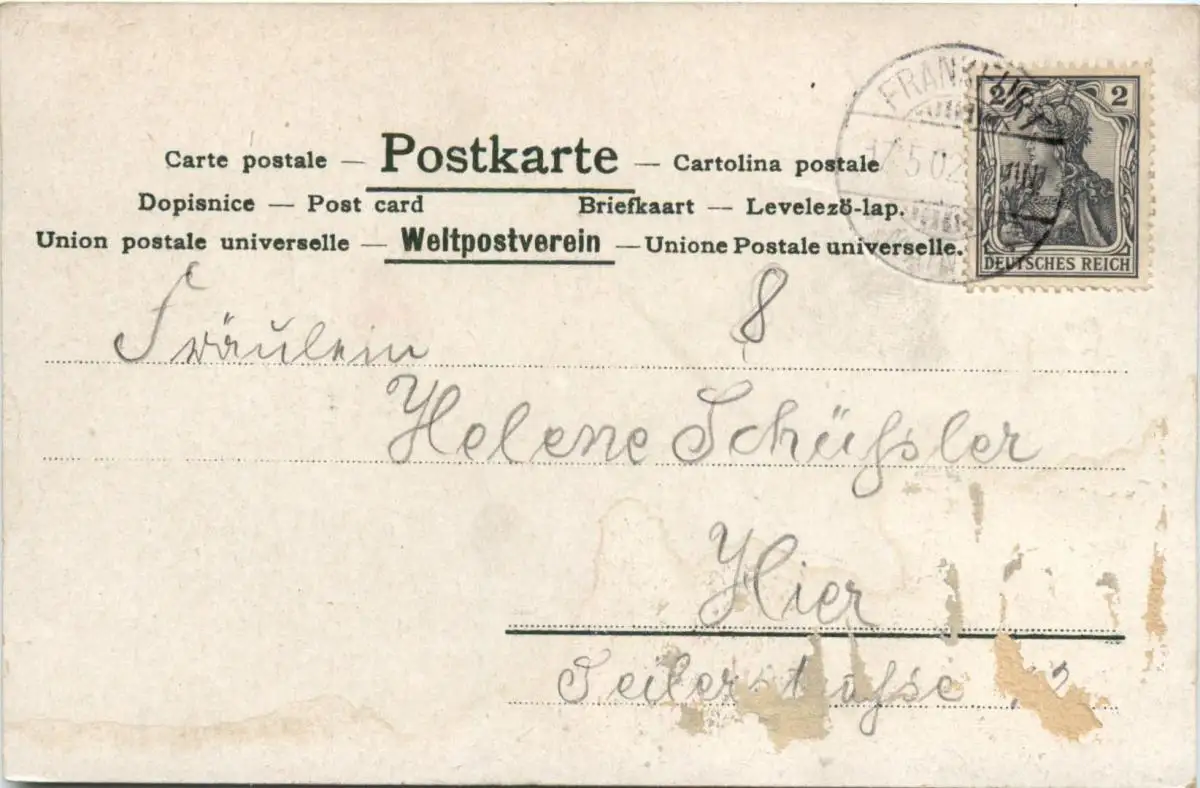 Carte postale — Postkarte — Cartolina postale
Dopisnice — Post card Briefkaart — Levelezö-lap.
Union postale universelle — Weltpostverein — Unione Postale universelle.
FRANKFURT
5 02
2 2
DEUTSCHES REICH
8
Fräulein
Helene Schüßler
Hier
Seilerstraße